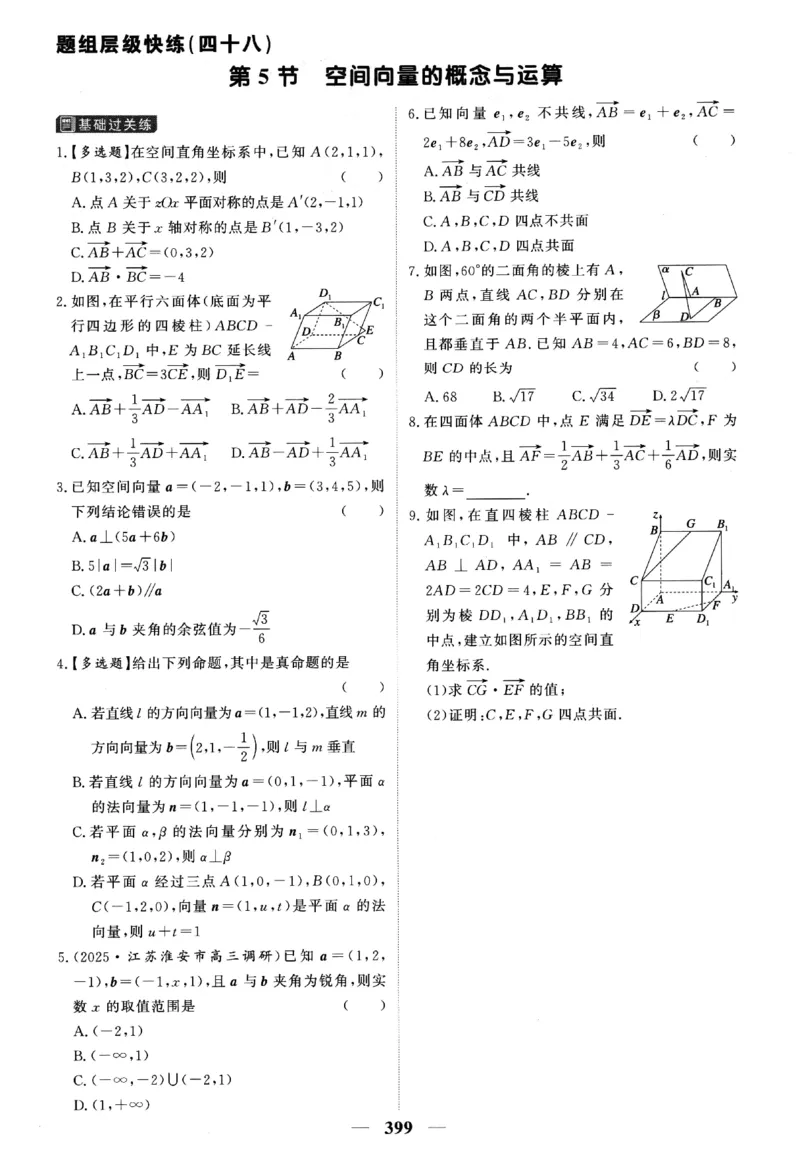 题组层级快练(四十八)
第 5 节 空间向量的概念与运算
基础过关练
1.【多选题】在空间直角坐标系中,已知 A(2,1,1),
B(1,3,2),C(3,2,2),则 ( )
A.点 A 关于 zOx 平面对称的点是 A′(2,-1,1)
B.点 B 关于 x 轴对称的点是 B′(1,-3,2)
C.$\overrightarrow{AB}+\overrightarrow{AC}$=(0,3,2)
D.$\overrightarrow{AB}\cdot\overrightarrow{BC}$=-4
2.如图,在平行六面体(底面为平
行四边形的四棱柱)ABCD-
A₁B₁C₁D₁ 中,E 为 BC 延长线
上一点,$\overrightarrow{BC}=3\overrightarrow{CE}$,则 $\overrightarrow{D_1E}$= ( )
D₁
C₁
A₁
B₁
D
E
C
A B
A.$\overrightarrow{AB}+\frac{1}{3}\overrightarrow{AD}-\overrightarrow{AA_1}$ B.$\overrightarrow{AB}+\overrightarrow{AD}-\frac{2}{3}\overrightarrow{AA_1}$
C.$\overrightarrow{AB}+\frac{1}{3}\overrightarrow{AD}+\overrightarrow{AA_1}$ D.$\overrightarrow{AB}-\overrightarrow{AD}+\frac{1}{3}\overrightarrow{AA_1}$
3.已知空间向量 a=(-2,-1,1),b=(3,4,5),则
下列结论错误的是 ( )
A.a⊥(5a+6b)
B.5|a|=√3|b|
C.(2a+b)∥a
D.a 与 b 夹角的余弦值为$-\frac{\sqrt{3}}{6}$
4.【多选题】给出下列命题,其中是真命题的是
( )
A.若直线 l 的方向向量为 a=(1,-1,2),直线 m 的
方向向量为 b=$\left(2,1,-\frac{1}{2}\right)$,则 l 与 m 垂直
B.若直线 l 的方向向量为 a=(0,1,-1),平面 α
的法向量为 n=(1,-1,-1),则 l⊥α
C.若平面 α,β 的法向量分别为 n₁=(0,1,3),
n₂=(1,0,2),则 α⊥β
D.若平面 α 经过三点 A(1,0,-1),B(0,1,0),
C(-1,2,0),向量 n=(1,u,t)是平面 α 的法
向量,则 u+t=1
5.(2025·江苏淮安市高三调研)已知 a=(1,2,
-1),b=(-1,x,1),且 a 与 b 夹角为锐角,则实
数 x 的取值范围是 ( )
A.(-2,1)
B.(-∞,1)
C.(-∞,-2)∪(-2,1)
D.(1,+∞)
6.已知向量 e₁,e₂ 不共线,$\overrightarrow{AB}$=e₁+e₂,$\overrightarrow{AC}$=
2e₁+8e₂,$\overrightarrow{AD}$=3e₁-5e₂,则 ( )
A.$\overrightarrow{AB}$ 与 $\overrightarrow{AC}$ 共线
B.$\overrightarrow{AB}$ 与 $\overrightarrow{CD}$ 共线
C.A,B,C,D 四点不共面
D.A,B,C,D 四点共面
7.如图,60°的二面角的棱上有 A,
B 两点,直线 AC,BD 分别在
这个二面角的两个半平面内,
且都垂直于 AB.已知 AB=4,AC=6,BD=8,
则 CD 的长为 ( )
α C
l A
B
β D
A.68 B.√17 C.√34 D.2√17
8.在四面体 ABCD 中,点 E 满足 $\overrightarrow{DE}=\lambda\overrightarrow{DC}$,F 为
BE 的中点,且 $\overrightarrow{AF}=\frac{1}{2}\overrightarrow{AB}+\frac{1}{3}\overrightarrow{AC}+\frac{1}{6}\overrightarrow{AD}$,则实
数 λ=______.
9.如图,在直四棱柱 ABCD-
A₁B₁C₁D₁ 中,AB∥CD,
AB⊥AD,AA₁=AB=
2AD=2CD=4,E,F,G 分
别为棱 DD₁,A₁D₁,BB₁ 的
中点,建立如图所示的空间直
角坐标系.
z
B G B₁
C C₁ A₁
A y
D F
x E D₁
(1)求 $\overrightarrow{CG}\cdot\overrightarrow{EF}$ 的值;
(2)证明:C,E,F,G 四点共面.
— 399 —